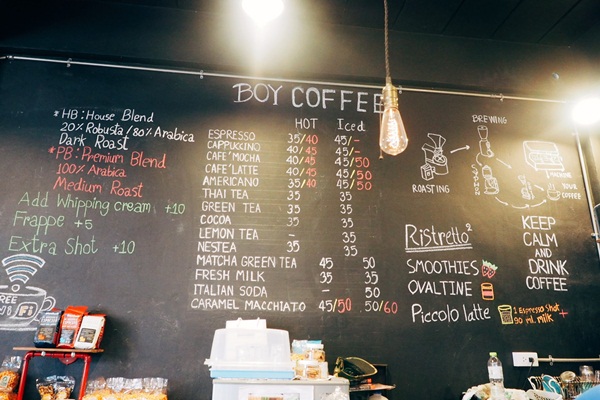 BOY COFFEE
*HB : House Blend
20% Robusta / 80% Arabica
Dark Roast
*PB : Premium Blend
100% Arabica
Medium Roast
Add Whipping cream +10
Frappe +5
Extra Shot +10
HOT Iced
ESPRESSO 35/40 45/-
CAPPUCCINO 40/45 45/-
CAFE'MOCHA 40/45 45/50
CAFE'LATTE 40/45 45/50
AMERICANO 35/40 45/50
THAI TEA 35 35
GREEN TEA 35 35
COCOA 35 35
LEMON TEA - 35
NESTEA 35 35
MATCHA GREEN TEA 45 50
FRESH MILK 35 35
ITALIAN SODA 50
CARAMEL MACCHIATO 45/50 50/60
BREWING
ROASTING
SYPHON
MACHINE
YOUR
COFFEE
Ristretto2
SMOOTHIES
OVALTINE
Piccolo latte
1 Espresso Shot +
90 ml. milk
KEEP
CALM
AND
DRINK
COFFEE